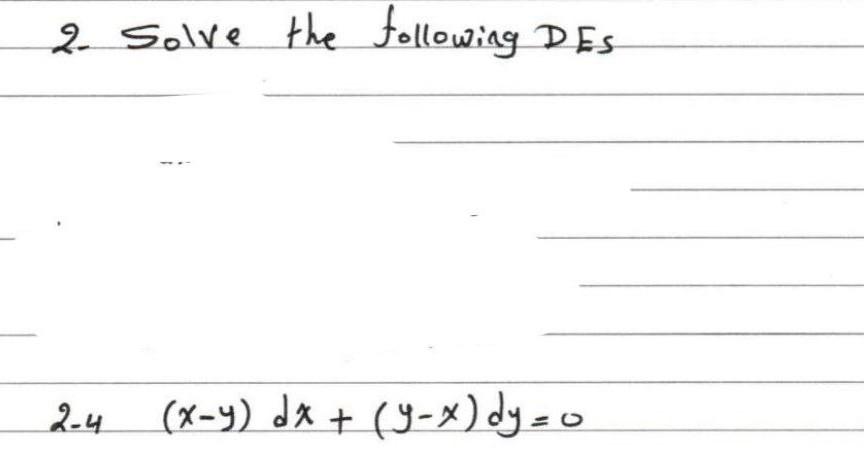 2- Solve the following DEs
2-4 (x-y) dx + (y-x) dy = 0